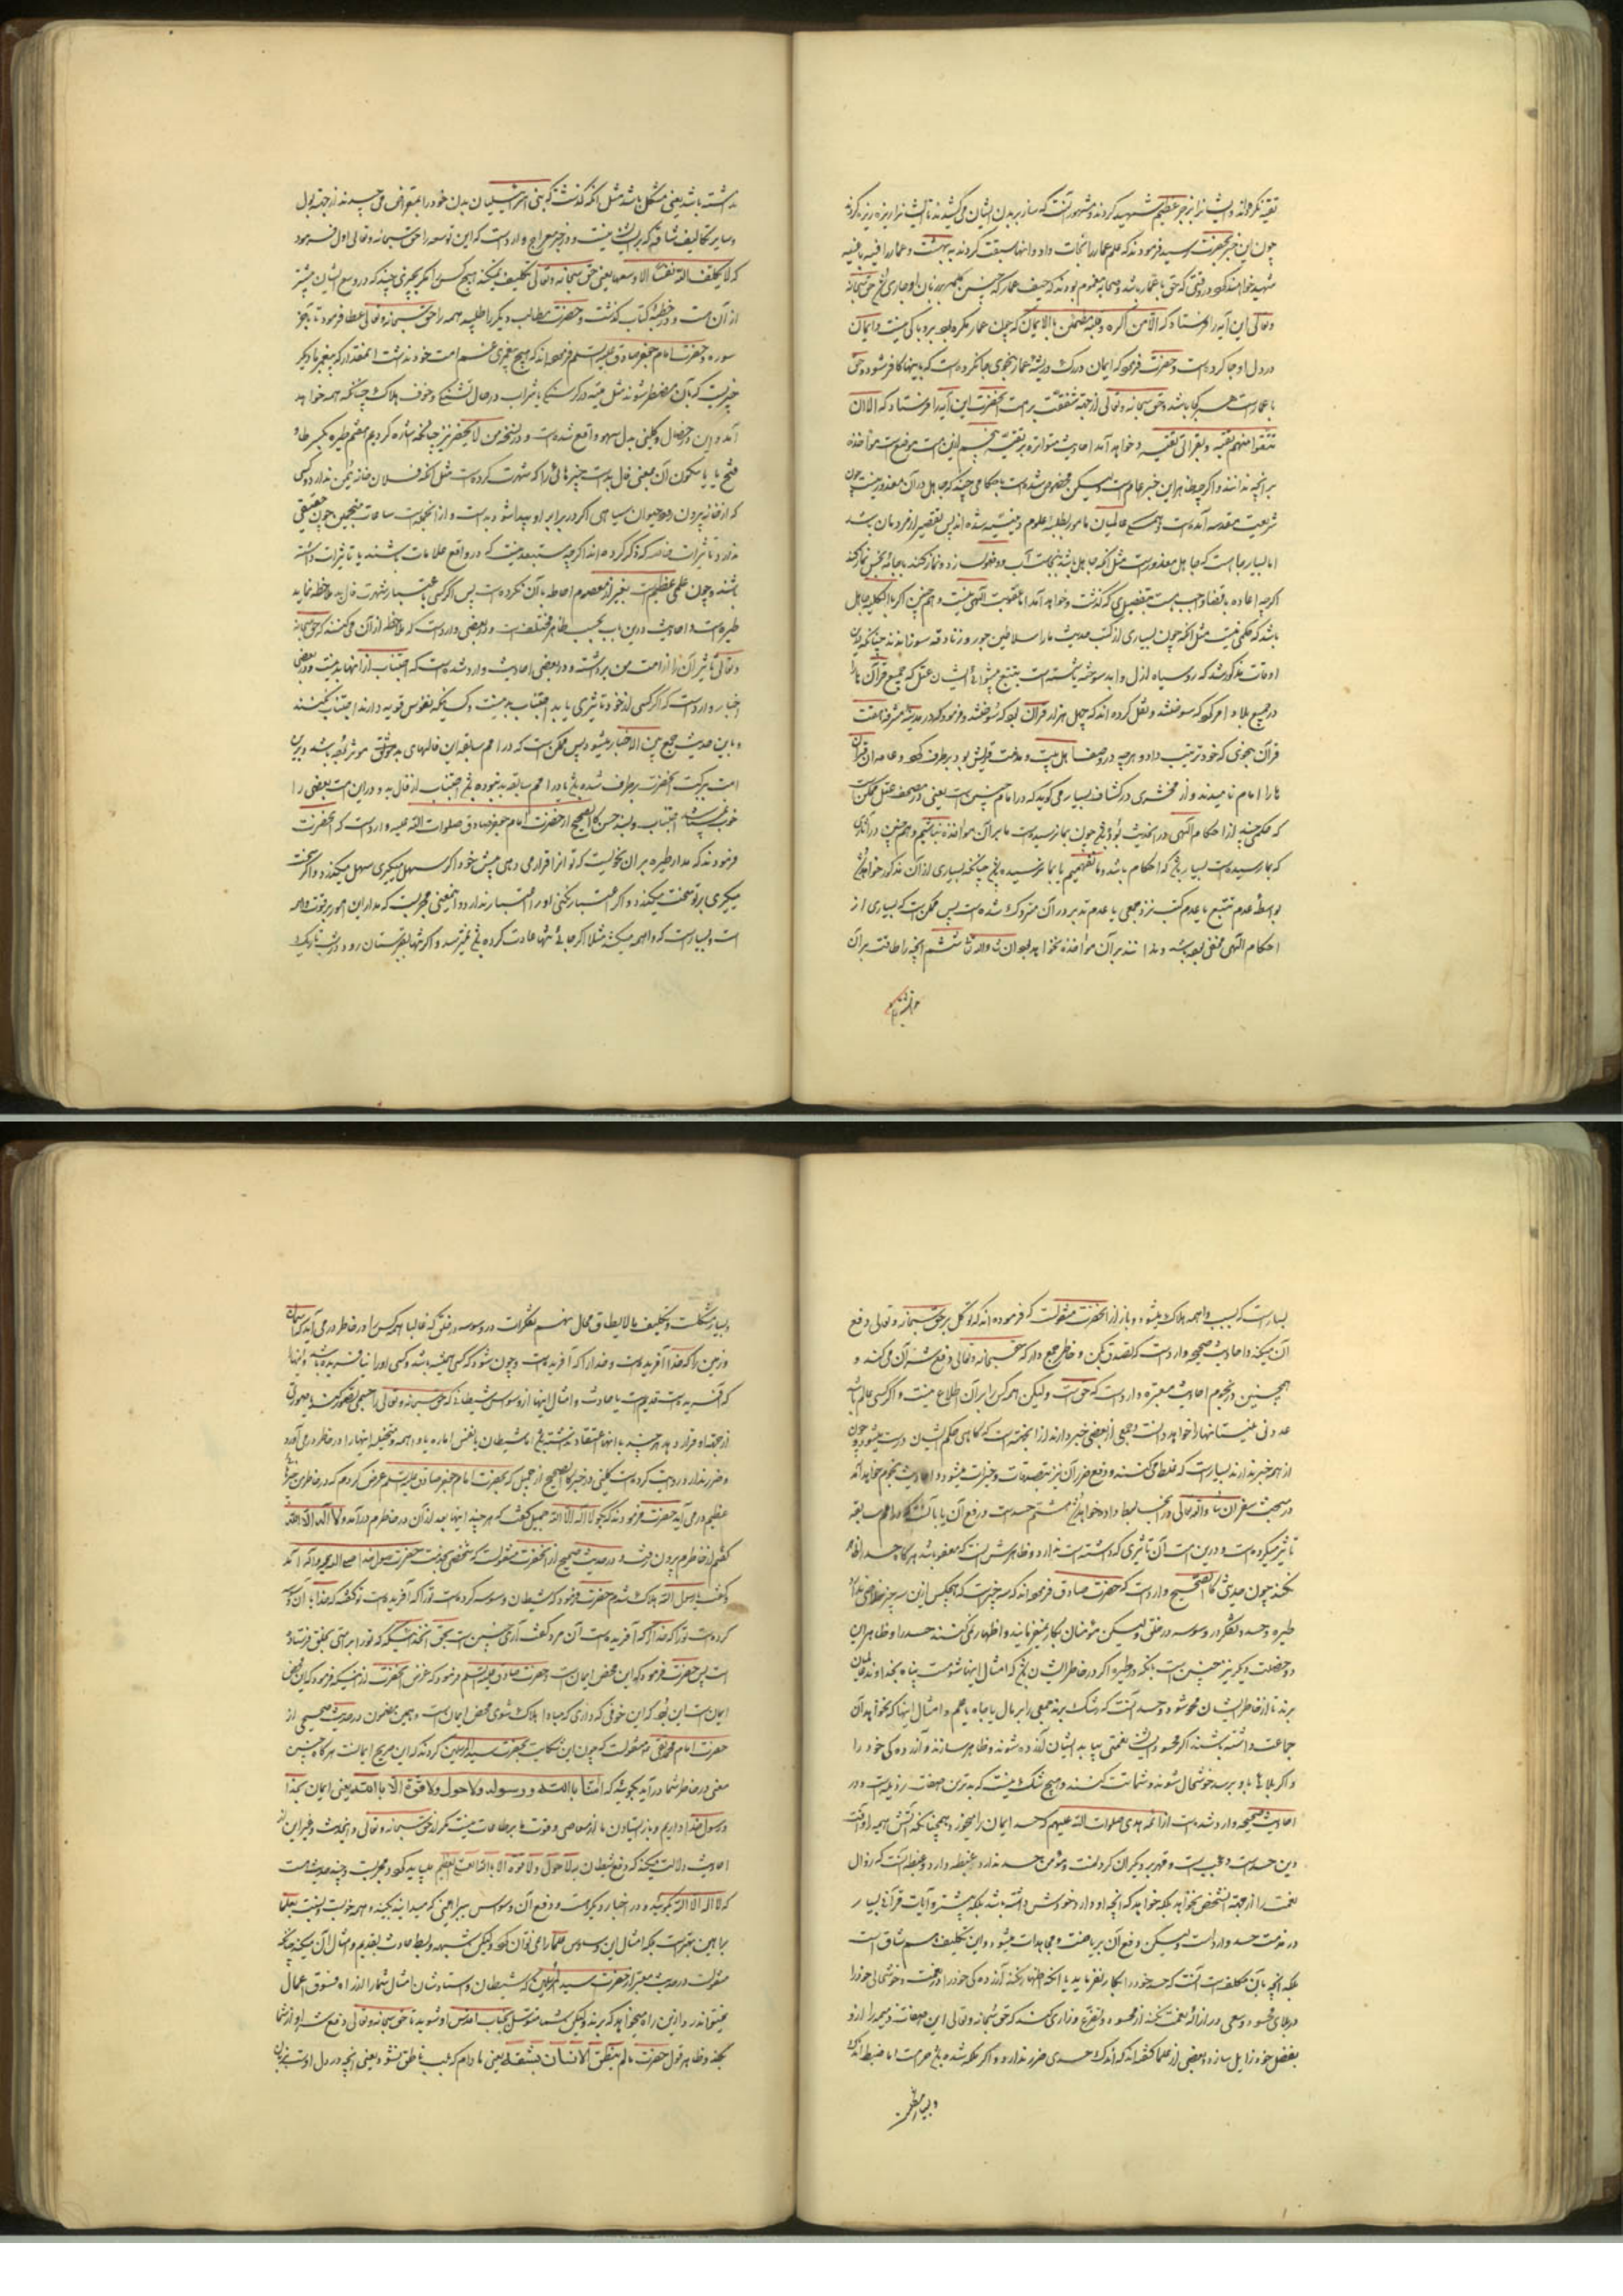 تقیه نکردند و ایشانرا بزجر عظیم شهید کردند و مشهور آنست که بر بدن ایشان می‌کشیدند تا ایشانرا ریزه ریزه کردند
چون این خبر بحضرت رسید فرمودند که عمار را نجات داد و آنها سبقت کردند به بهشت و عمار را فئه باغیه
شهید خواهند کرد در وقتی که حق با عمار باشد و صحابه مغموم بودند که حیف عمار که چنین کلمه بر زبان او جاری شد حق سبحانه
و تعالی این آیه را فرستاد که الا من اکره و قلبه مطمئن بالایمان که چون عمار مکره بود برو باکی نیست و ایمان
در دل او جا کرده است و حضرت فرمود که ایمان در رگ و ریشه عمار بنحوی جا کرده است که باینها کافر شود و حق
با عمارست هر کجا باشد و حق سبحانه و تعالی از جهة شفقت بر امت آنحضرت این آیه را فرستاد که الا ان
تتقوا منهم تقیه و بقرائتی تقیه و خواهد آمد احادیث متواتره بر تقیه پنجم این است موضوع است مواخذه
بر آنچه ندانند و اگر چه ظاهر این خبر عام است ولیکن مخصوص شده است باحکامی چند که جاهل در آن معذور نیست چون
شریعت مقدسه آمده است و همه عالمیان مامور بطلب علوم دینیه شده اند پس تقصیر از مردمان باشد
اما بسیار جا است که جاهل معذورست مثل آنکه جاهل باشد بنجاست آب و وضو بسازد و نماز کند یا جامه نجس نماز کند
اگرچه اعاده یا قضا واجبست بتفصیلی که گذشت و خواهد آمد اما عقوبت الهی نیست و همچنین اگر بالکلیه جاهل
باشد که حکمی هست مثل آنکه چون بسیاری از کتب حدیث ما را سلاطین جور و زنادقه سوزاندند چنانکه درین
اوقات مذکور شد که روسیاه ازل و ابد سوخته باشد است بتبع پیشوای ایشان عثمان که جمیع قرآن ها را
در جمیع بلاد امر کرد که سوختند و نقل کرده اند که چهل هزار قرآن بود که سوختند و فرمود که در مدینه مشرفه
قرآن بنحوی که خود ترتیب داد و هرچه در وصف اهل بیت و مذمت قریش بود برطرف کرد و عامه ان قرآن
ها را امام نامیدند و زمخشری در کشاف بسیار می گوید که در امام چنین است یعنی در مصحف عثمان ممکن است
که حکمی چند از احکام الهی در احادیث بوده باشد چون بما نرسیده است ما بر آن مواخذه نباشیم و همچنین در آثاری
که بما رسیده است بسیار باشد که احکام باشد و ما نفهمیم یا بما نرسیده باشد چنانکه بسیاری از آن مذکور خواهد شد
بواسطه عدم تتبع یا عدم کتب نزد جمعی یا عدم تدبر در آن متروک شده است پس ممکن است که بسیاری از
احکام الهی مخفی بوده باشد و خداوند بر آن مواخذه نخواهد نمود ان شاء الله تعالی ششم آنچه را طاقت بر آن
نداشته باشد یعنی مشکل باشد مثل آنکه گذشت که بنی اسرائیلیان بدن خود را بمقراض می چیدند از جهة بول
و سایر تکالیف شاقه که بر ایشان نیست و در خبر معراج وارد است که این توسعه را حق سبحانه و تعالی اول فرمود
که لا یکلف الله نفسا الا وسعها یعنی حق سبحانه و تعالی تکلیف نمی‌کند هیچ کس را مگر بچیزی چند که در وسع ایشان بیشتر
از آن است و در خطبه کتاب گذشت و حضرت مطالب دیگر را طلبید همه را حق سبحانه و تعالی عطا فرمود تا بآخر
سوره و حضرت امام جعفر صادق علیه السلم فرموده اند که هیچ پیغمبری غم امت خود نداشت آنمقدار که پیغمبر ما دیگر
چیزیست که بآن مضطر شوند مثل میته در گرسنگی یا شراب در حال تشنگی و خوف هلاک چنانکه همه خواهد
آمد و این در خصال و کلینی بدل سهو واقع شده است و در نسخه من لا یحضر نیز چنانکه اشاره کردیم هفتم طیره بکسر طاء
فتح یا یا سکون آن بمعنی فال بدست چیزهائی را که شهرت کرده است مثل آنکه فلان خانه یمن ندارد و کسی
که از خانه بیرون رود حیوان سیاهی اگر در برابر او پیدا شود بدست و از آنجمله است ساعات منجمین چون حقیقتی
ندارد و تاثیرات خاصه که ذکر کرده اند اگرچه مستبعد نیست که در واقع علامات باشند یا تاثیرات داشته
باشند و چون علمی عظیم است بغیر از معصوم احاطه بآن نکرده است پس اگر کسی باعتبار شهرت فال بد ملاحظه نماید
طیره است و احادیث درین باب بحسب ظاهر مختلف است و در بعضی وارد است که ملاحظه از آن می کنند که حق سبحانه
و تعالی تاثیر آن را از امت من برداشته و در بعضی احادیث وارد شده است که اجتناب از اینها بد نیست و در بعضی
اخبار وارد است که اگر کسی از خود تاثیری یابد اجتناب خوبست و کسانیکه نفوس قویه دارند اجتناب نکنند
و باین حدیث جمع بین الاخبار میشود پس ممکن است که در امم سابقه این فالهای بد و خوش موثر بوده باشد و درین
امت ببرکت آنحضرت برطرف شده باشد یا در امم سابقه بد نبوده باشد اجتناب از فال بد و در این امت بعضی را
خوب باشد اجتناب و بسند حسن کالصحیح از حضرت امام جعفر صادق صلوات الله علیه وارد است که آنحضرت
فرمودند که مدار طیره بر آن نحویست که تو آنرا قرار می دهی پیش خود اگر سهل میگیری سهل میگذرد و اگر سخت
میگیری بر تو سخت میگذرد و اگر اعتبار نکنی او را اعتبار ندارد و ایمعنی مجربست که مدار این امور بر قوت واهمه
است و بسیارست که واهمه میکشد مثلا اگر جائی تنها عادت کرده باشد نمیترسد و اگر تنها بقبرستان رود در شب تاریک
بسیارست که بسبب واهمه هلاک میشود و باز از آنحضرت منقولست که فرموده اند که توکل بر حق سبحانه و تعالی دفع
آن میکند و احادیث صحیحه وارد است که تصدق بکن و خاطر جمع دار که حق سبحانه و تعالی دفع شر آن می کند و
همچنین در نجوم احادیث معتبره وارد است که حق است ولیکن همه کس را بر آن اطلاع نیست و اگر کسی عالم باشد
از همه خبر ندارند بسیار است که غلط می کنند و دفع ضرر آن نیز بتصدقات و خیرات میشود و احادیث نجوم خواهد آمد
در مبحث سفر ان شاء الله تعالی و آنجا بسط داده خواهد شد هشتم حسد است
تاثیر میکرده است و درین امت آن تاثیری که داشته است ندارد و ظاهرش آنست که معفو باشد هرگاه حسد را اظهار
نکند چون حدیث کالصحیح وارد است که حضرت صادق فرموده اند که سه چیز است که هیچکس ازین سه چیز خلاصی ندارد
طیره و حسد و تفکر در وسوسه در خلق ولیکن مؤمنان بکار نمیفرمایند و اظهار نمی کنند حسد را و ظاهر این
دو خصلت دیگر نیز چنین است بآنکه در طیره اگر در خاطر ایشان باشد که امثال اینها شومست پناه بخداوند عالمیان
برند تا از خاطر ایشان محو شود و حسد آنست که رشک برند جمعی را بر مال یا جاه یا علم و امثال اینها که نخواهد آن
جماعت داشته باشند اگر محسود ایشان نعمتی بیابد ایشان آزرده شوند و ظاهر سازند و آزردگی خود را
و اگر بلائی باو برسد خوشحال شوند و شماتت کنند و هیچ شک نیست که بدترین صفات رذیله است و در
احادیث صحیحه وارد شده است از ائمه هدی صلوات الله علیهم که حسد ایمان را میخورد همچنانکه آتش هیمه را و آفت
دین حسد است و عجب است و فخر بر دیگران کردنست و مؤمن حسد ندارد و غبطه دارد و غبطه آنست که زوال
نعمت را از جهة آنشخص نخواهد بلکه خواهد که آنچه او دارد خودش داشته باشد بلکه بیشتر و آیات قرآنی بسیار
در مذمت حسد وارد است ولیکن دفع آن بریاضت و مجاهدات میشود و این تکلیف هم شاق است
بلکه آنچه بآن مکلف است آنست که حسد خود را بکار نفرماید یا آنکه اظهار نکند آزردگی خود را در نعمت و خوشحالی خود را
در بلای محسود و سعی در ازاله نعمت نکند از محسود و تضرع و زاری کند که حق سبحانه و تعالی این صفات ذمیمه را ازو
بفضل خود زایل سازد و بعضی از علما گفته اند که اندک حسدی ضرر ندارد و اگر ملکه شده باشد حرامست اما ضبط اندک
و بسیار مشکلست و تکلیف بما لا یطاق محال نهم تفکرات در وسوسه در خلق که غالبا همه کس را در خاطر درمی آید که آسمان
و زمین را که خدا آفریده است و خدا را که آفریده است و چون میشود که کسی همیشه باشد و کسی او را نیافریده باشد و اینها
که آفریده است قدیم است یا حادث و امثال اینها از وسوسه شیطانی که حق سبحانه و تعالی را جسمی تصور کند یا صورتی
از جهة او قرار دهد هر چند باینها اعتقاد نداشته باشد اما شیطان با نفس اماره یا واهمه و متخیله اینها را در خاطر درمی آورد
و ضرر ندارد و روایت کرده است کلینی در خبر کالصحیح از جمیل که بحضرت امام جعفر صادق علیه السلم عرض کردم که در خاطر من چیزهای
عظیم درمی آید حضرت فرمودند که بگو لا اله الا الله جمیل گفت که هر چند اینها بعد از آن در خاطرم درآمد و لا اله الا الله
گفتم از خاطرم بیرون رفت و در حدیث صحیح از آنحضرت منقولست که شخصی بخدمت حضرت رسول خدا صلی الله علیه و اله آمد
و گفت یا رسول الله هلاک شدم حضرت فرمود که شیطان وسوسه کرده است ترا که آفریده است تو گفته که خدا باز آن وسوسه
کرده است ترا که خدا را که آفریده است آن مرد گفت آری چنین است بحق آنخداوندی که تو را براستی بخلق فرستاده
است پس حضرت فرمود که این محض ایمان است و حضرت صادق علیه السلم فرمود که غرض آنحضرت از اینکه فرمود که این محض
ایمان است این بود که این خوفی که داری که مبادا هلاک شوی محض ایمان است و همین مضمون در حدیث صحیحی از
حضرت امام محمد تقی منقولست که چون این شکایت بحضرت سید المرسلین کردند که این صریح ایمانست هرگاه چنین
معنی در خاطر شما درآید بگوئید که امنا بالله و رسوله و لا حول و لا قوة الا بالله یعنی ایمان بخدا
و رسول خدا داریم و باز ایستادن ما از معاصی و قوت ما بر طاعات نیست مگر از حق سبحانه و تعالی و اینحدیث و غیر این
احادیث دلالت میکند که دفع شیطان بلا حول و لا قوة الا بالله العلی العظیم میباید کرد و مجربست و چند حدیث است
که لا اله الا الله بگوئید و در اخبار دیگر است و دفع آن وسوسه ببراهینی که میدانید بکنید و همه خوب است
براهین بهتر است بلکه امثال این وسوسه علما را می توان کرد ولیکن شبهه ربط حادث بقدیم و امثال آن میکند چنانکه
منقولست در حدیث معتبر از حضرت سید المرسلین که شیطان و استادشان امثال شما را از راه فسوق اعمال
نمیتواند برد از این راه میخواهد که برند لیکن شما متوسل بجناب اقدس او شوید تا حق سبحانه و تعالی دفع شر او از شما
بکند و ظاهر قول حضرت ما لم ینطق الانسان بشفة یعنی مادام که لب ناطق نشود یعنی آنچه در دل اوست بزبان